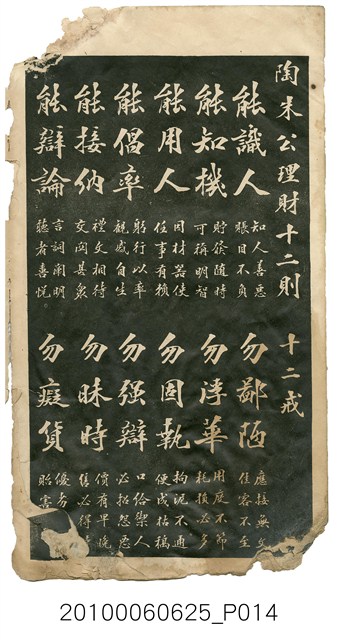 陶朱公理財十二則　十二戒
能識人　知人善惡　賬目不負
能知機　貯積隨時　可稱明智
能用人　因材器使　任事有賴
能倡率　躬行以率　觀感自生
能接納　禮文相待　交關甚衆
能辯論　言詞閑明　聽者喜悅
勿鄙陋　應接無文　佳客不至
勿浮華　用度不節　耗後必多
勿固執　拘泥不通　便成枯槁
勿强辯　口給禦人　必招怨惡
勿昧時　價有早晚　售必得
勿癡貨　優劣　貽害
20100060625_P014